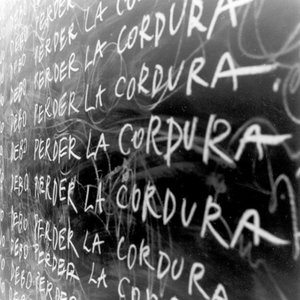 DEBO PERDER LA CORDURA
DEBO PERDER LA CORDURA
DEBO PERDER LA CORDURA
DEBO PERDER LA CORDURA
DEBO PERDER LA CORDURA
DEBO PERDER LA CORDURA
DEBO PERDER LA CORDURA
DEBO PERDER LA CORDURA